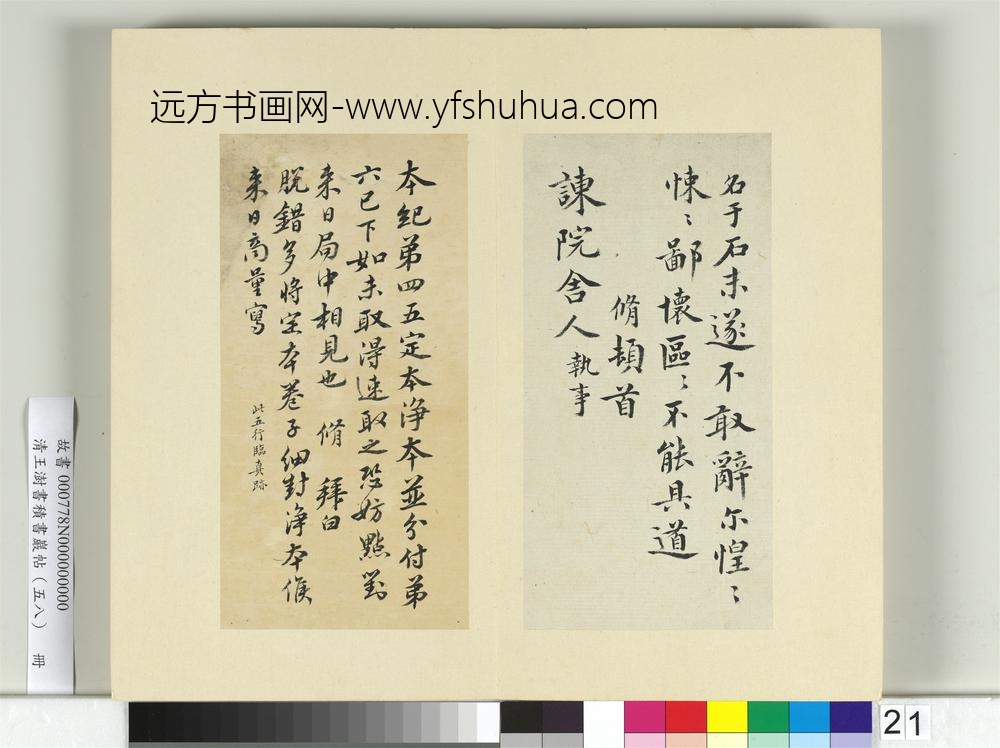 远方书画网-www.yfshuhua.com
名于石未遂不敢辭尔惶〻
悚〻鄙懷區〻不能具道
脩頓首
諫院舍人執事
本紀第四五定本淨本並分付第
六已下如未取得速取之恐妨點對
来日局中相見也 脩 拜白
脱錯多將定本卷子細對淨本候
来日商量寫
此五行臨真跡
故書 000778N000000000
清王澍書積書巖帖(五八) 冊
21